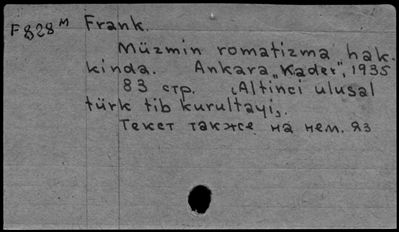 F828м Frank.
Müzmin romatizma hak-
kinda. Ankara, „Kader", 1935
83 стр. (Altinci ulusal
türk tib kurultayi).
Текст также на нем. яз